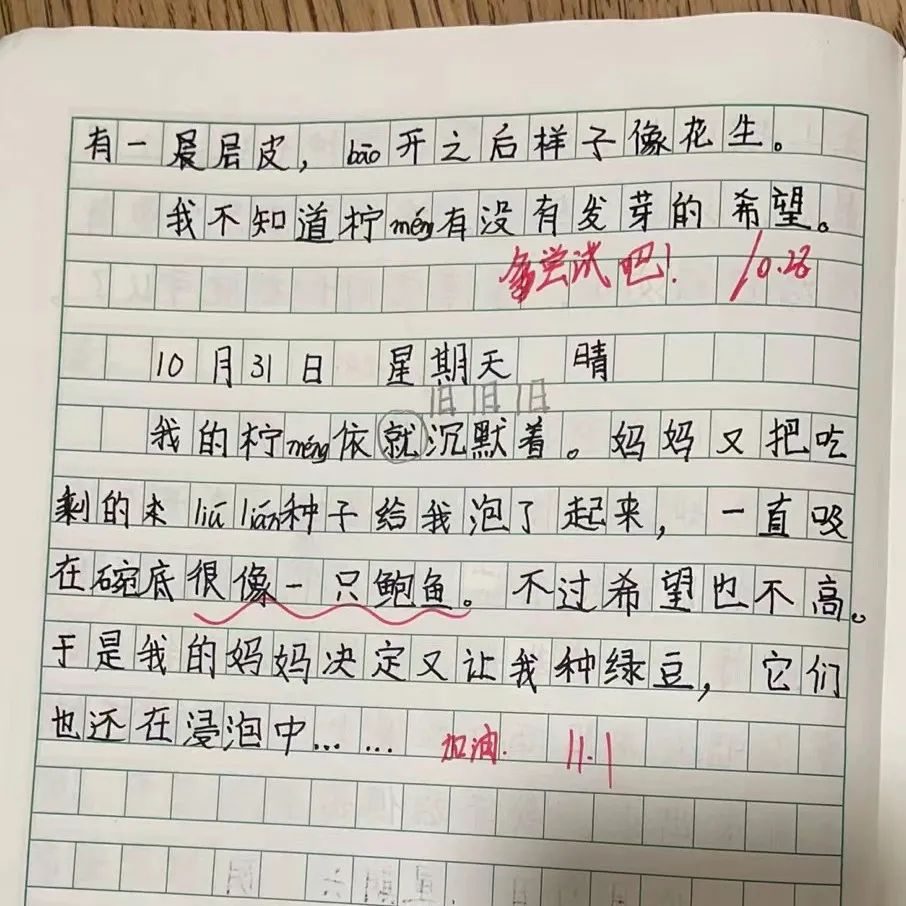 有一层皮，bāo开之后样子像花生。
我不知道柠méng有没有发芽的希望。
多尝试吧！ 10.28
10月31日 星期天 晴
旧旧旧
我的柠méng依就沉默着。妈妈又把吃
剩的来liú lián种子给我泡了起来，一直吸
在碗底很像一只鲍鱼。不过希望也不高。
于是我的妈妈决定又让我种绿豆，它们
也还在浸泡中……
加油. 11.1